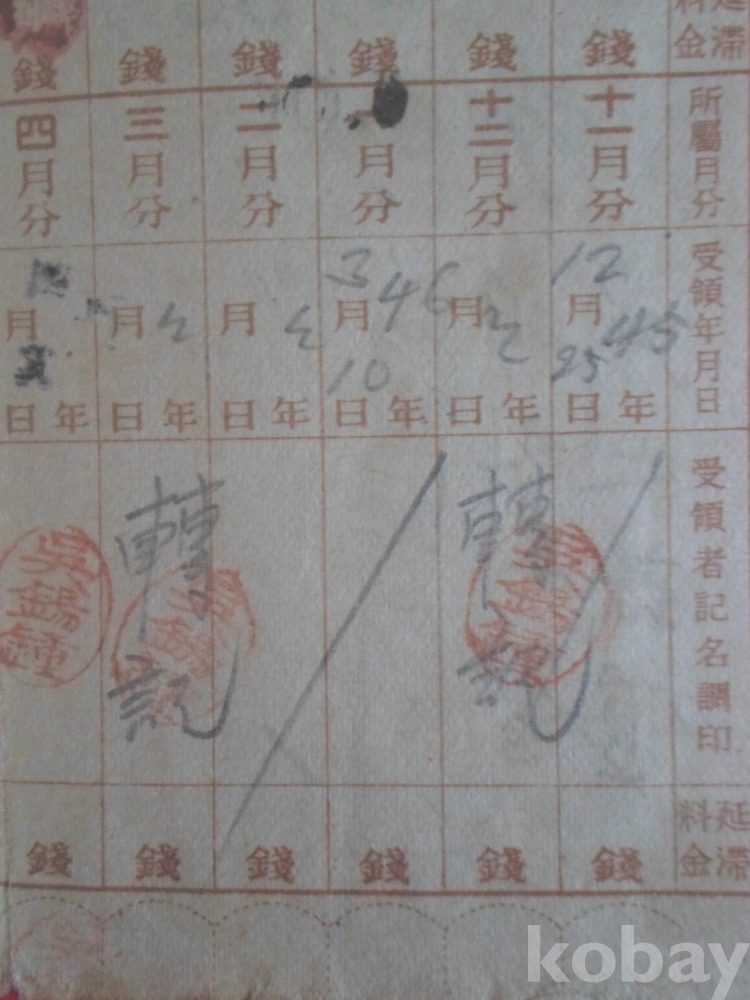 延滯料金 錢 錢 錢 錢 錢 錢
所屬月分 十一月分 十二月分 月分 二月分 三月分 四月分
受領年月日
12月 25日 45年
月 日 年
3月 10日 46年
月 日 年
月 日 年
月 日 年
受領者記名調印
轉記
轉記
吳錫鍾
延滯料金 錢 錢 錢 錢 錢 錢
kobay